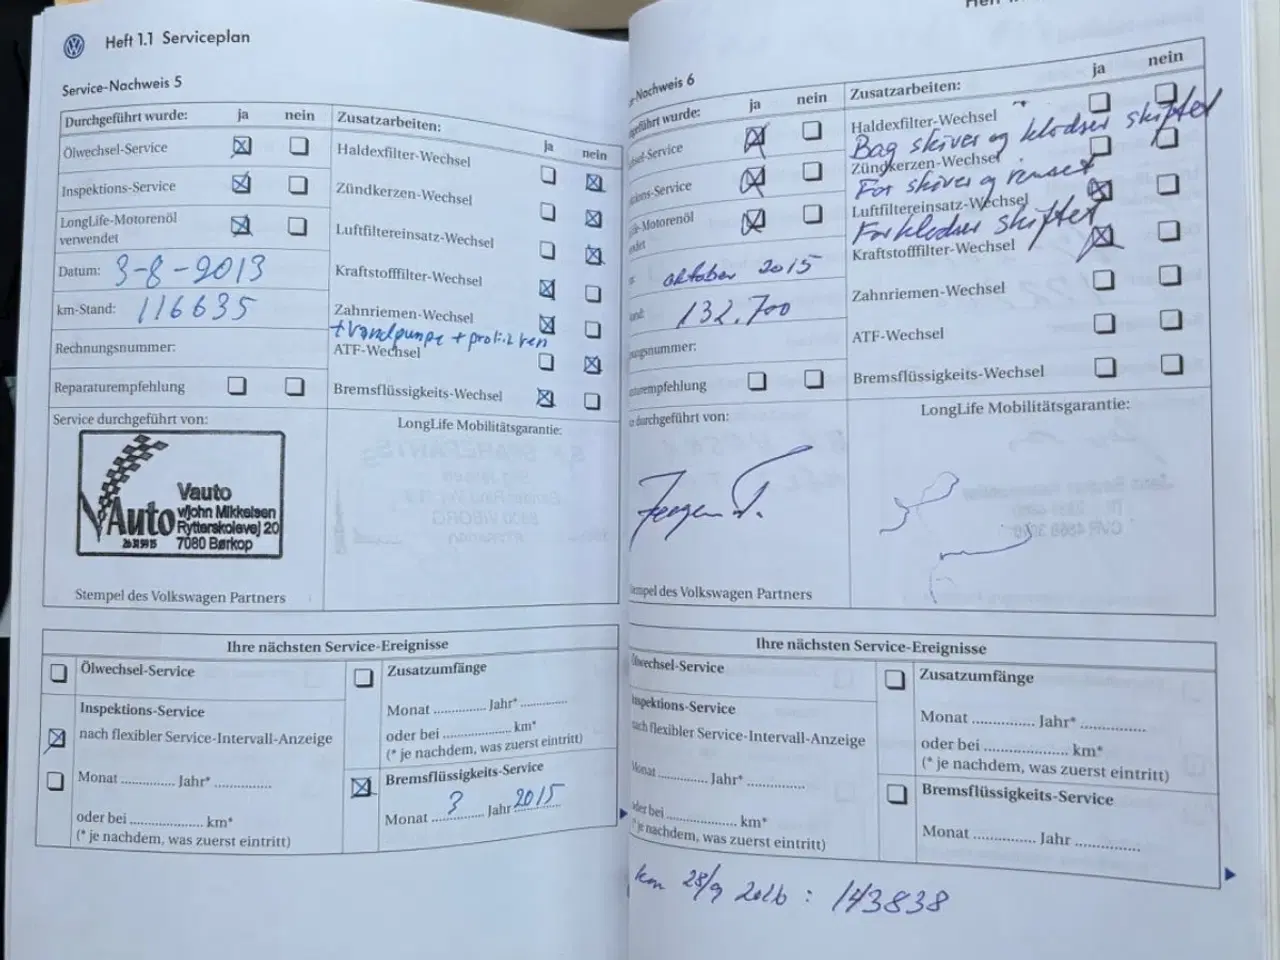 Heft 1.1 Serviceplan
Service-Nachweis 5
Durchgeführt wurde: ja nein
Ölwechsel-Service
Inspektions-Service
LongLife-Motorenöl
verwendet
Datum: 3-8-2013
km-Stand: 116635
Rechnungsnummer:
Reparaturempfehlung
Zusatzarbeiten:
ja nein
Haldexfilter-Wechsel
Zündkerzen-Wechsel
Luftfiltereinsatz-Wechsel
Kraftstofffilter-Wechsel
Zahnriemen-Wechsel
+ Vandpumpe +
ATF-Wechsel
Bremsflüssigkeits-Wechsel
Service durchgeführt von:
VAuto
Vauto
v/John Mikkelsen
Rytterskolevej 20
7080 Børkop
Stempel des Volkswagen Partners
LongLife Mobilitätsgarantie:
Ihre nächsten Service-Ereignisse
Ölwechsel-Service
Inspektions-Service
nach flexibler Service-Intervall-Anzeige
Monat ............. Jahr* ....................
oder bei .................... km*
(* je nachdem, was zuerst eintritt)
Zusatzumfänge
Monat ............. Jahr* ............
oder bei .................. km*
(* je nachdem, was zuerst eintritt)
Bremsflüssigkeits-Service
Monat 3 Jahr 2015
-Nachweis 6
geführt wurde: ja nein
sel-Service
tions-Service
fe-Motorenöl
ndet
oktober 2015
and: 132.700
ungsnummer:
raturempfehlung
Zusatzarbeiten:
ja nein
Haldexfilter-Wechsel
Bag skiver og klodser skiftet
Zündkerzen-Wechsel
For skiver og renset
Luftfiltereinsatz-Wechsel
For klodser skiftet
Kraftstofffilter-Wechsel
Zahnriemen-Wechsel
ATF-Wechsel
Bremsflüssigkeits-Wechsel
e durchgeführt von:
tempel des Volkswagen Partners
LongLife Mobilitätsgarantie:
Ihre nächsten Service-Ereignisse
Ölwechsel-Service
nspektions-Service
nach flexibler Service-Intervall-Anzeige
Monat ............. Jahr* ....................
oder bei .................... km*
* je nachdem, was zuerst eintritt)
Zusatzumfänge
Monat ............. Jahr* ................
oder bei .................... km*
(* je nachdem, was zuerst eintritt)
Bremsflüssigkeits-Service
Monat ............. Jahr ................
km 28/9 2016 : 143838